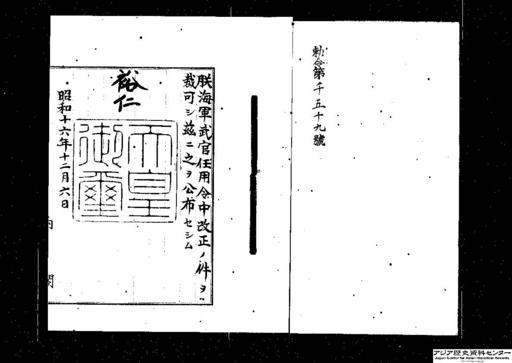 勅令第千五十九號
朕海軍武官任用令中改正ノ件ヲ
裁可シ茲ニ之ヲ公布セシム
裕仁
天皇御璽
昭和十六年十二月六日
内閣
アジア歴史資料センター
Japan Center for Asian Historical Records